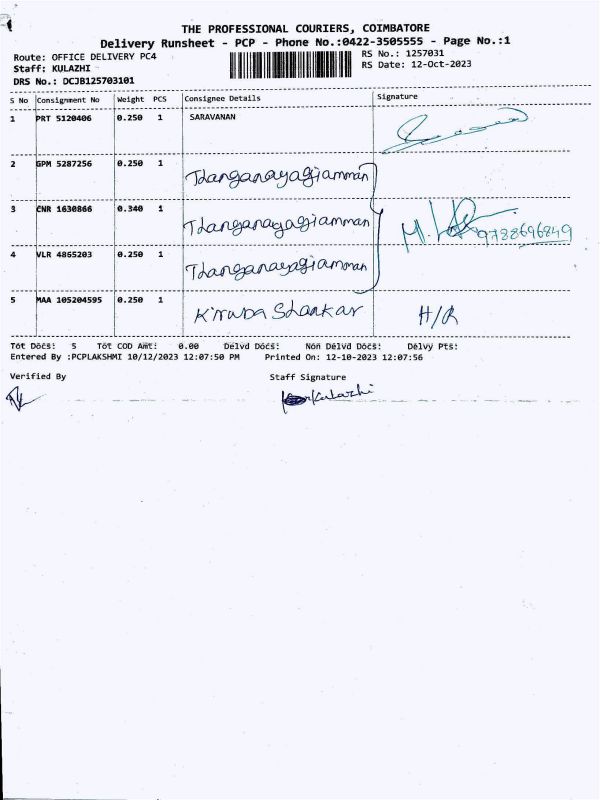 THE PROFESSIONAL COURIERS, COIMBATORE
Delivery Runsheet - PCP - Phone No.:0422-3505555 - Page No.:1
Route: OFFICE DELIVERY PC4
RS No.: 1257031
Staff: KULAZHI
RS Date: 12-Oct-2023
DRS No.: DCJB125703101
S No Consignment No Weight PCS Consignee Details Signature
1 PRT 5120406 0.250 1 SARAVANAN
2 GPM 5287256 0.250 1 Thanganayagiamman
3 CNR 1630866 0.340 1 Thanganayagiamman
M. 9788696849
4 VLR 4865203 0.250 1 Thanganayagiamman
5 MAA 105204595 0.250 1 Kiruba Shankar H/R
Tot Docs: 5 Tot COD Amt: 0.00 Delvd Docs: Non Delvd Docs: Delvy Pts:
Entered By :PCPLAKSHMI 10/12/2023 12:07:50 PM Printed On: 12-10-2023 12:07:56
Verified By Staff Signature
Kulazhi